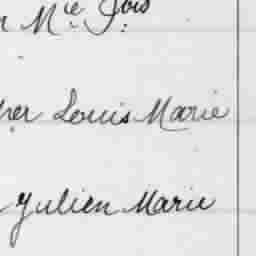 Mie Jois
her Louis Marie
Julien Marie